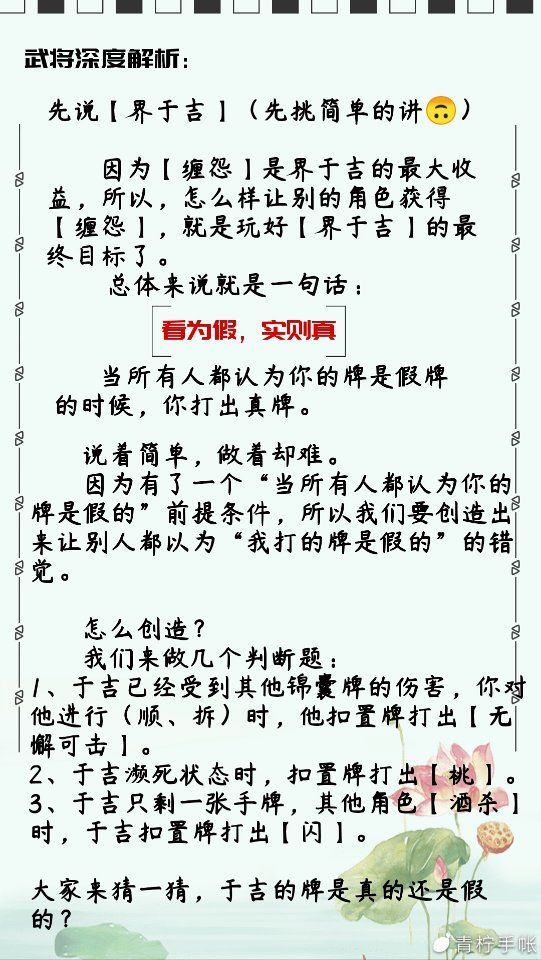 武将深度解析：
先说【界于吉】（先挑简单的讲🙃）
因为【缠怨】是界于吉的最大收
益，所以，怎么样让别的角色获得
【缠怨】，就是玩好【界于吉】的最
终目标了。
总体来说就是一句话：
看为假，实则真
当所有人都认为你的牌是假牌
的时候，你打出真牌。
说着简单，做着却难。
因为有了一个“当所有人都认为你的
牌是假的”前提条件，所以我们要创造出
来让别人都以为“我打的牌是假的”的错
觉。
怎么创造？
我们来做几个判断题：
1、于吉已经受到其他锦囊牌的伤害，你对
他进行（顺、拆）时，他扣置牌打出【无
懈可击】。
2、于吉濒死状态时，扣置牌打出【桃】。
3、于吉只剩一张手牌，其他角色【酒杀】
时，于吉扣置牌打出【闪】。
大家来猜一猜，于吉的牌是真的还是假
的？
青柠手帐